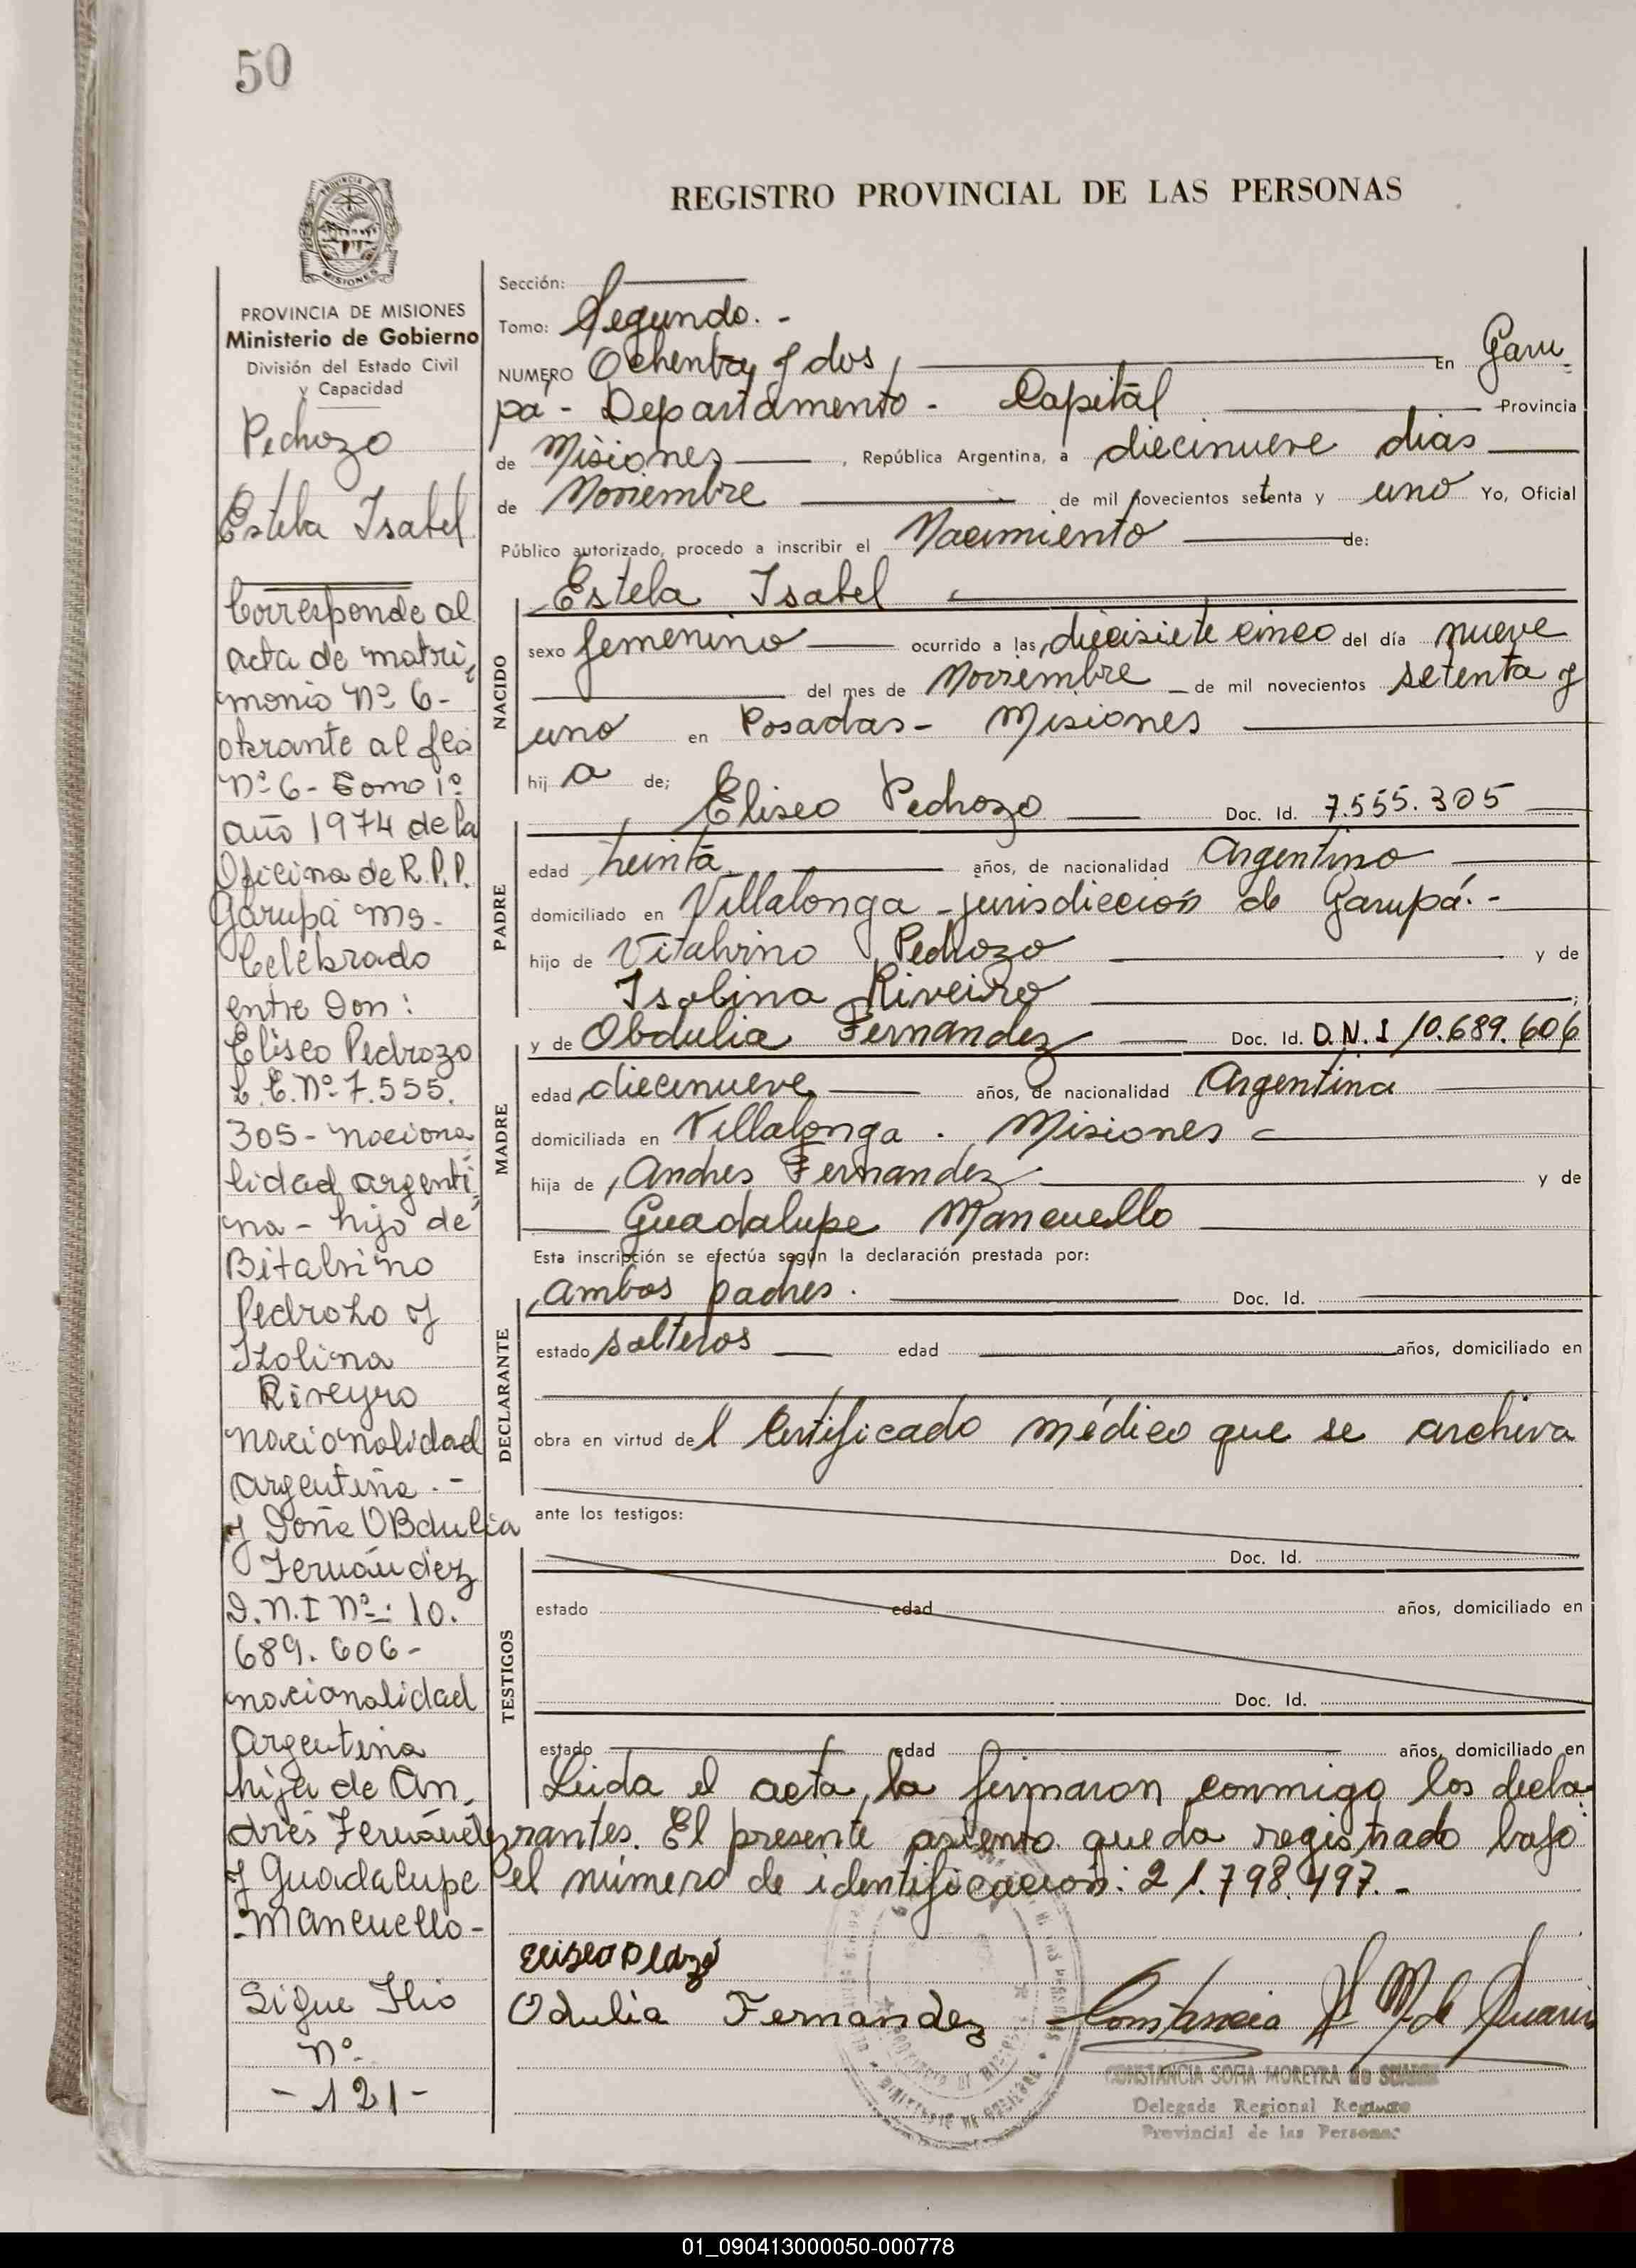 50
REGISTRO PROVINCIAL DE LAS PERSONAS
MISIONES
PROVINCIA DE MISIONES
Ministerio de Gobierno
División del Estado Civil
y Capacidad
Pedrozo
Estela Isabel
Corresponde al
acta de matri-
monio Nº 6-
obrante al flio
Nº 6- Tomo 1º
año 1974 de la
Oficina de R.P.P.
Garupá Ms-
Celebrado
entre Don:
Eliseo Pedrozo
L.E. Nº 7.555.
305- naciona
lidad argenti-
na- hijo de
Bitalvino
Pedrozo y
Izolina
Riveyro
nacionalidad
argentina.-
y Doña OBdulia
Fernández
D.N.I Nº: 10.
689.606-
nacionalidad
Argentina
hija de An-
drés Fernández
y Guadalupe
Mancuello-
Sigue flio
Nº
-121-
Sección:
Tomo: Segundo.-
NUMERO Ochenta y dos En Garu-
pá- Departamento- Capital Provincia
de Misiones, República Argentina, a diecinueve dias
de Noviembre de mil novecientos setenta y uno Yo, Oficial
Público autorizado, procedo a inscribir el Nacimiento de:
Estela Isabel
NACIDO
sexo femenino ocurrido a las, diecisiete cinco del día nueve
del mes de Noviembre de mil novecientos setenta y
uno en Posadas- Misiones
hij a de;
Eliseo Pedrozo Doc. Id. 7.555.305
PADRE
edad treinta años, de nacionalidad Argentino
domiciliado en Villalonga -jurisdicción de Garupá.-
hijo de Vitalvino Pedrozo y de
Isolina Riveiro;
y de Obdulia Fernandez Doc. Id. D.N.I 10.689.606
MADRE
edad diecinueve años, de nacionalidad Argentina
domiciliada en Villalonga. Misiones
hija de Andres Fernandez y de
Guadalupe Mancuello
Esta inscripción se efectúa según la declaración prestada por:
ambos padres. Doc. Id.
DECLARANTE
estado solteros edad años, domiciliado en
obra en virtud de l Certificado médico que se archiva
ante los testigos:
Doc. Id.
TESTIGOS
estado edad años, domiciliado en
Doc. Id.
estado edad años, domiciliado en
Leida el acta, la firmaron conmigo los decla
rantes. El presente asiento queda registrado bajo
el número de identificación: 21.798.497.-
Odulia Fernandez
CONSTANCIA SOFIA MOREYRA de
Delegada Regional Registro
Provincial de las Personas
01_090413000050-000778